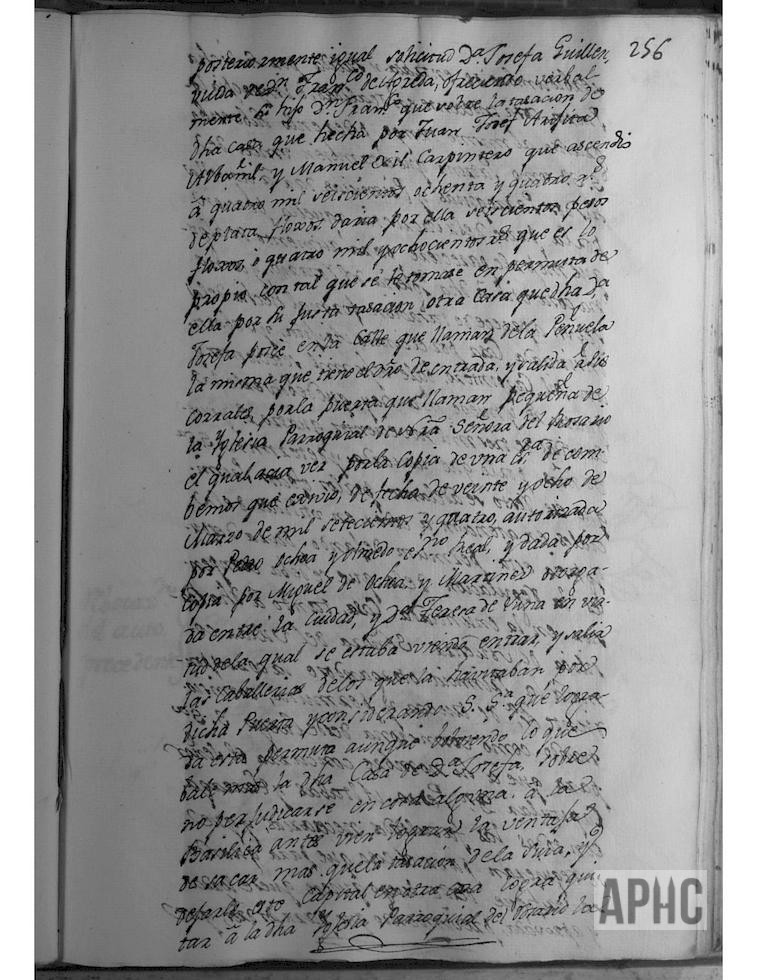 posteriormente igual solicitud Dª. Josefa Guillen, 256
viuda de Dn Franco de Agreda, ofreciendo verbal-
mente su hijo Dn. Franco que sobre la tasacion de
dha casa que hecha por Juan Josef Arista
Albañil y Manuel Gil Carpintero que ascendio
â quatro mil seiscientos ochenta y quatro rs
de plata floxos, daria por ella seiscientos pesos
floxos, o quatro mil y ochocientos rs que es lo
propio, con tal que se le tomase en permuta de
ella por su justa tasacion, otra Casa que dha Da
Josefa posee en la Calle que llaman dela Peñuela
la misma que tiene el dño de entrada, y salida â sus
corrales, por la puerta que llaman pequeña de
la Yglesia Parroquial de Nra Señora del Rosario
el qual acia ver por la Copia de una esra de com-
bemos que exivio, de fecha de veinte y ocho de
Marzo de mil setecientos y quatro, autorizada
por Pedro Ochoa y Olmedo esno Real, y dada por
copia por Miguel de Ochoa y Martinez otorga-
da entre la Ciudad, y Da Teresa de Luna en vir-
tud dela qual se estaba viendo entrar, y salir
las caballerias delos que la havitaban por
dicha Puerta y considerando S. Sa que logra-
da esta permuta aunque bolviendo lo que
bale mas la dha Casa de Da Josefa, sobre
no perjudicarse en cosa alguna â la
Basilica antes vien lograr la ventaja
de sacar mas que la tasacion dela suya, y
dexarle este Capital en otra casa logra qui-
tar â la dha Yglesia Parroquial del Rosario la
APHC